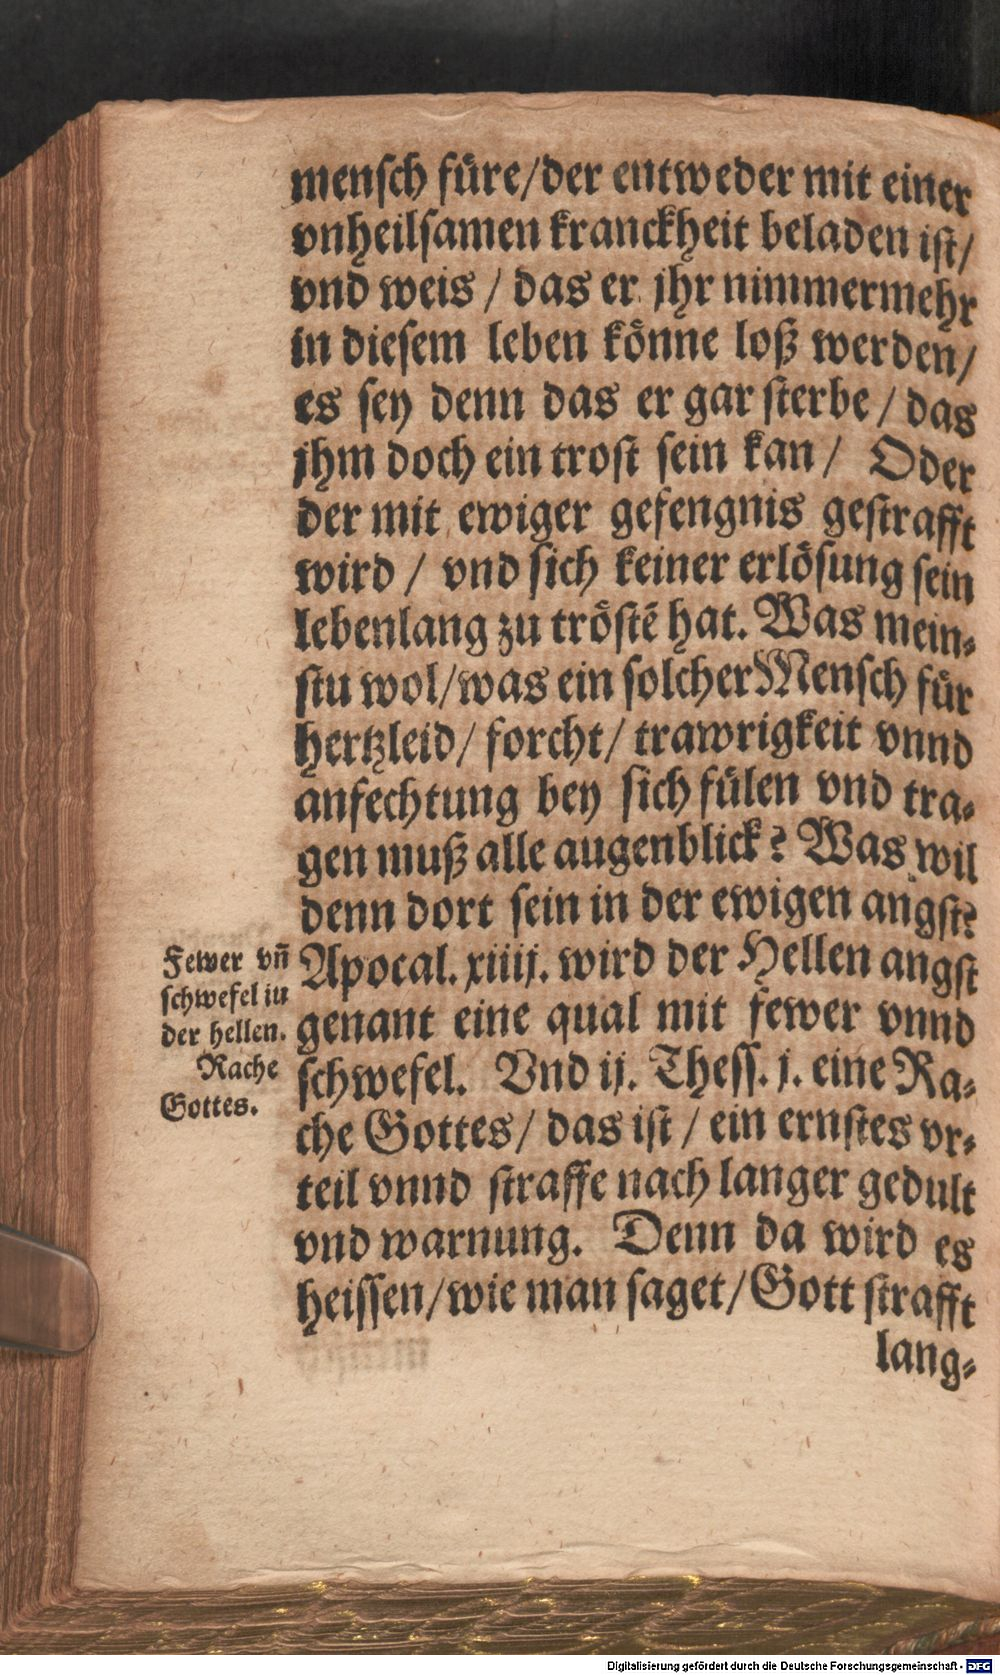 mensch fuͤre/der entweder mit einer
vnheilsamen kranckheit beladen ist/
vnd weis / das er jhr nimmermehr
in diesem leben koͤnne loß werden/
es sey denn das er gar sterbe / das
jhm doch ein trost sein kan / Oder
der mit ewiger gefengnis gestrafft
wird / vnd sich keiner erloͤsung sein
lebenlang zu troͤstẽ hat. Was mein⸗
stu wol/was ein solcher Mensch fuͤr
hertzleid/ forcht/ trawrigkeit vnnd
anfechtung bey sich fuͤlen vnd tra⸗
gen muß alle augenblick? Was wil
denn dort sein in der ewigen angst?
Apocal. xiiij. wird der Hellen angst
genant eine qual mit fewer vnnd
schwefel. Vnd ij. Thess. j. eine Ra⸗
che Gottes/ das ist / ein ernstes vr⸗
teil vnnd straffe nach langer gedult
vnd warnung. Denn da wird es
heissen/wie man saget/Gott strafft
lang⸗
Fewer vñ
schwefel in
der hellen.
Rache
Gottes.
Digitalisierung gefördert durch die Deutsche Forschungsgemeinschaft - DFG